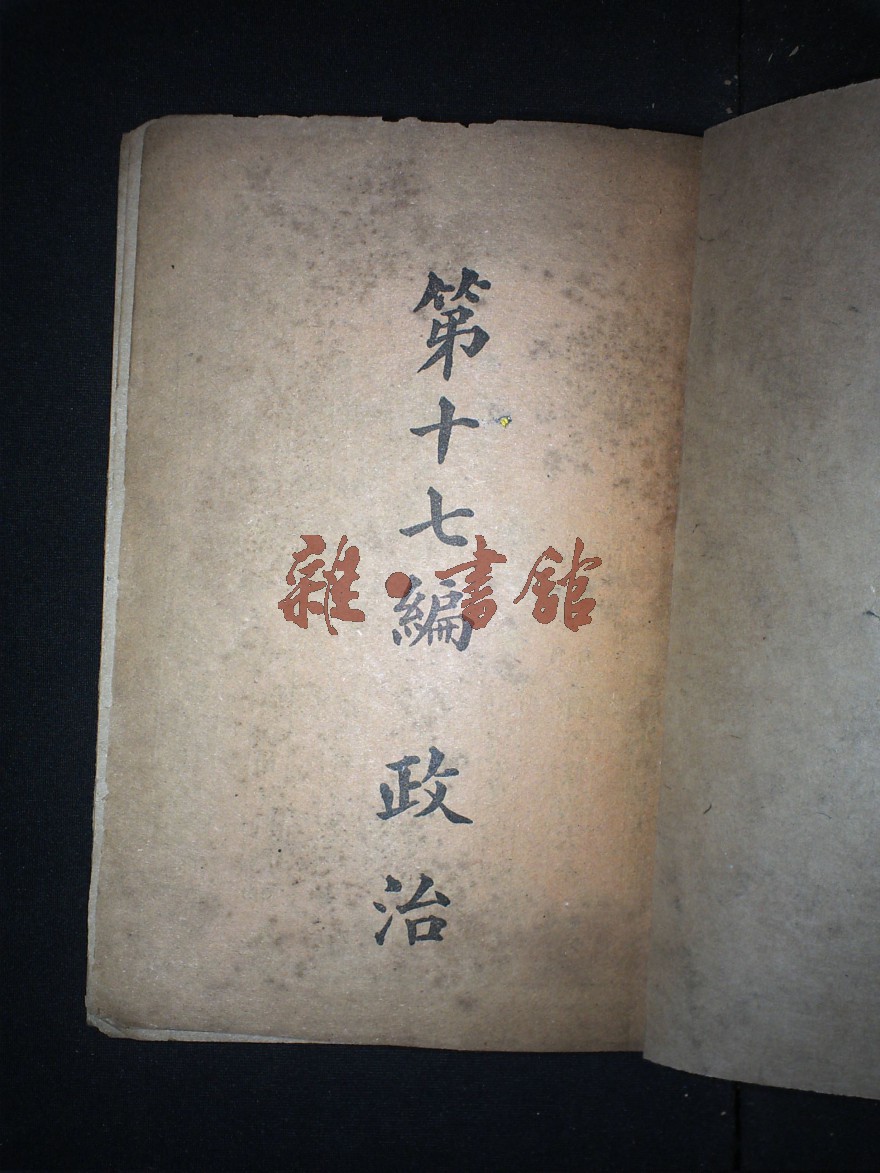 第十七編 政治
雜·書館